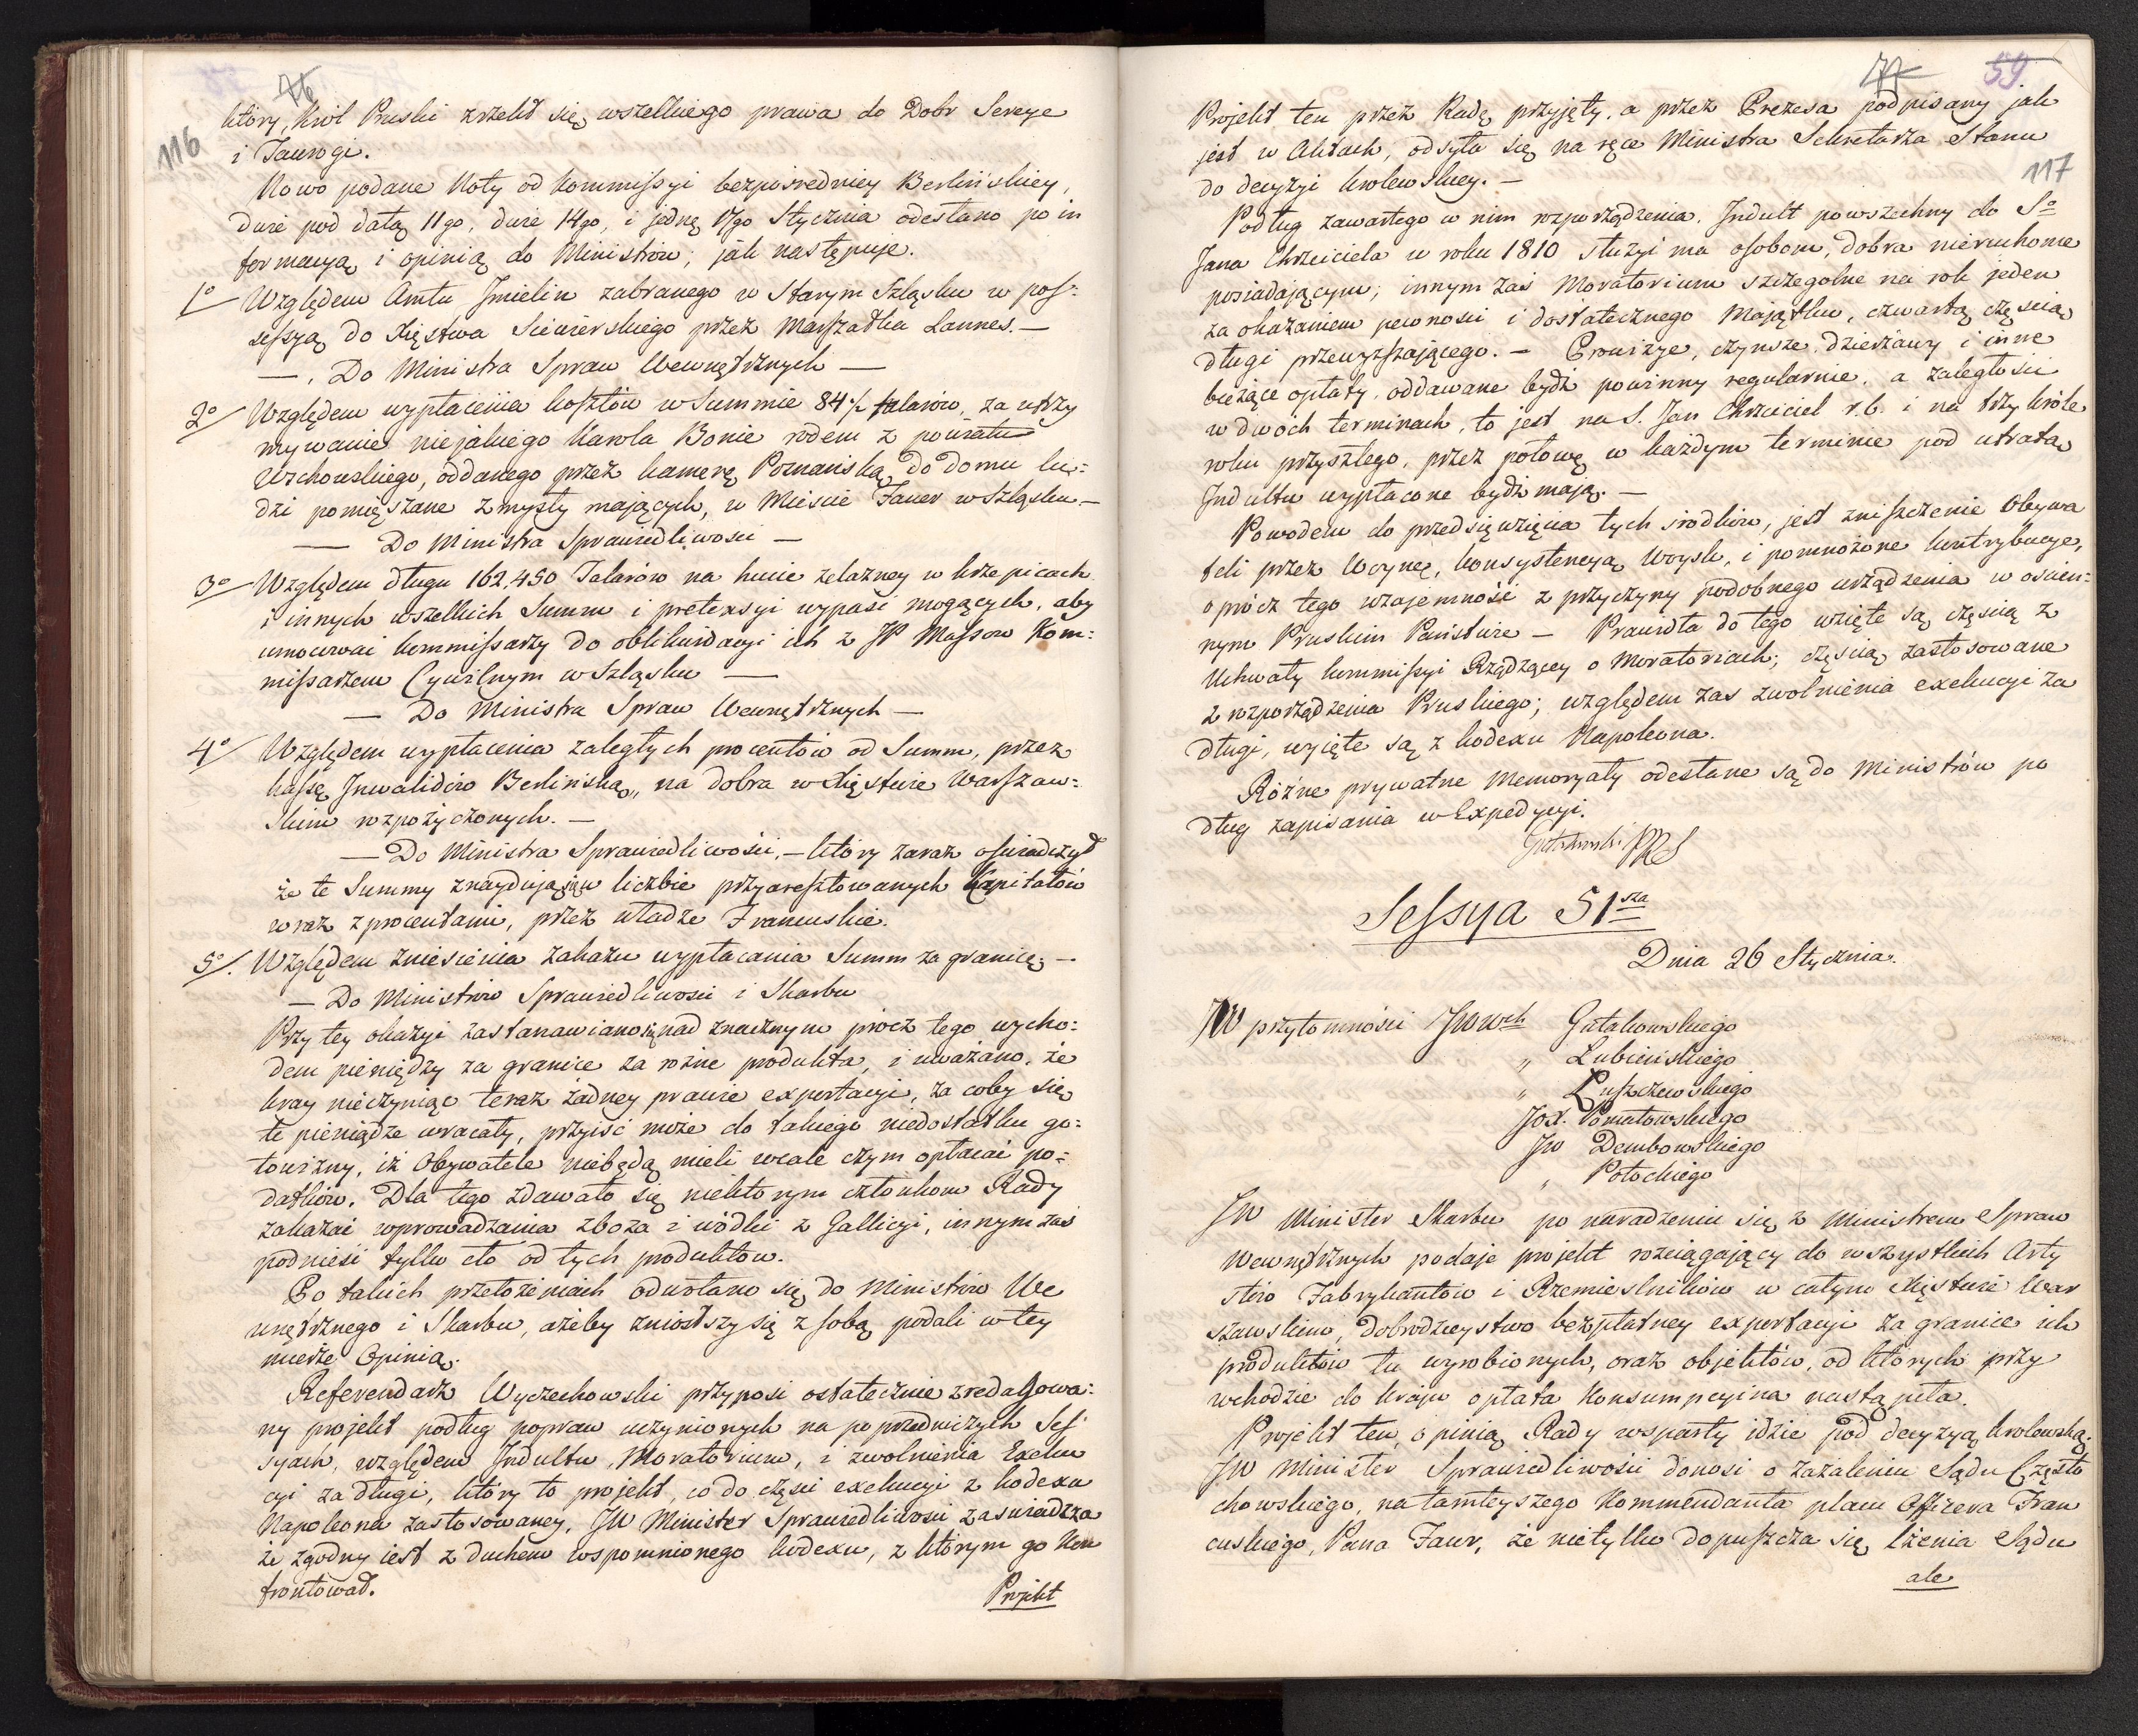 76
116
który, Król Pruski zrzekł się wszelkiego prawa do Dobr Sereye
i Taurogi.
Nowo podane Noty od Kommissyi bezposredniey Berlińskiey,
dwie pod datą 11go, dwie 14go, i jedną 17go Stycznia odesłano po in
formacyą i opinią do Ministrów; jak następuje.
1o Względem Amtu Imielin zabranego w Starym Szląsku w pos:
sessyą do Xięstwa Siewierskiego przez Marszałka Lannes. —
—. Do Ministra Spraw Wewnętrznych —
2o Względem wypłacenia kosztów w Summie 84 1/2 talarów, za utrzy
mywanie niejakiego Karola Bonie rodem z powiatu
Wschowskiego, oddanego przez kamerę Poznańską, do domu lu:
dzi pomięszane zmysły mających, w Mieście Jauer w Szląsku —
— Do Ministra Sprawiedliwosci —
3o Względem długu 162,450 Talarów na hucie żelazney w Krzepicach
i innych wszelkich Summ i pretensyi wypaść mogących, aby
umocować kommissarzy do oblikwidacyi ich z JP Massow Kom:
missarzem Cywilnym w Szląsku —
— Do Ministra Spraw Wewnętrznych —
4o Względem wypłacenia zaległych procentów od Summ, przez
kassę Inwalidów Berlińską, na dobra w Xięstwie Warszaw:
skim rozpożyczonych. —
— Do Ministra Sprawiedliwości, — który zaraz oświadczył
że te Summy znaydują się w liczbie przyaresztowanych Kapitałów
wraz z procentami, przez władze Francuskie.
5o Względem zniesienia zakazu wypłacania Summ za granicę; —
— Do Ministrów Sprawiedliwosci i Skarbu
Przy tey okazyi zastanawiano się nad znacznym prócz tego wycho:
dem pieniędzy za granice za rożne produkta, i uważano, że
kray nieczyniąc teraz żadney prawie exportacyi, za coby się
te pieniądze wracały, przyiść może do takiego niedostatku go:
towizny, iż Obywatele niebędą mieli wcale czym opłacać po:
datków. Dla tego zdawało się niektorym członkom Rady
zakazać wprowadzania zboża i wódki z Gallicyi, innym zaś
podnieść tylko cło od tych produktow.
Po takich przełożeniach odwołano się do Ministrów We
wnętrznego i Skarbu, ażeby zniosłszy się z sobą podali w tey
mierze Opinią.
Referendarz Wyczechowski przynosi ostatecznie zredagowa:
ny projekt podług popraw uczynionych na poprzedniczych Ses
syach, względem Indultu, Moratorium, i zwolnienia Exeku
cyi za długi, który to projekt, co do części exekucyi z kodexu
Napoleona zastosowaney, JW Minister Sprawiedliwosci zaswiadcza
że zgodny iest z duchem wspomnionego kodexu, z którym go Kon
frontował.
Projekt
77 59
117
Projekt ten przez Radę przyjęty, a przez Prezesa podpisany jak
jest w Aktach, odsyła się na ręce Ministra Sekretarza Stanu
do decyzyi krolewskiey. —
Podług zawartego w nim rozporządzenia, Indult powszechny do So
Jana Chrzciciela w roku 1810 służyć ma osobom, dobra nieruchome
posiadającym; innym zaś Moratorium szczegolne na rok jeden
za okazaniem pewnosci i dostatecznego Majątku, czwartą częscią
długi przewyższającego. — Prowizye, czynsze, dzierżawy i inne
bieżące opłaty, oddawane bydź powinny regularnie, a zaległości
w dwóch terminach, to jest na S. Jan Chrzciciel r.b. i na trzy króle
roku przyszłego, przez połowę w każdym terminie pod utratą
Indultu wypłacone bydź mają. —
Powodem do przedsięwzięcia tych środków, jest zniszczenie Obywa
teli przez Woynę, konsystencyą Woysk, i pomnożone kontrybucye,
oprócz tego wzajemność z przyczyny podobnego urządzenia w oscien:
nym Pruskim Państwie — Prawidła do tego wzięte są częscią z
Uchwały kommissyi Rządzącey o Moratoriach; częscią zastosowane
z rozporządzenia Pruskiego; względem zas zwolnienia exekucyi za
długi, wyięte są z kodexu Napoleona.
Różne prywatne memoryały odesłane są do Ministrów po
dług zapisania w Expedycyi.
Gutakowski PRS
Sessya 51sza
Dnia 26 Stycznia.
W przytomności JWWch Gutakowskiego
„ Lubieńskiego
„ Łuszczewskiego
JOX. Poniatowskiego
JW Dembowskiego
„ Potockiego
JW Minister Skarbu po naradzeniu się z Ministrem Spraw
Wewnętrznych podaje projekt rozciągający do wszystkich Arty
stów Fabrykantów i Rzemieslników w całym Xięstwie War
szawskim, dobrodzieystwo bezpłatney exportacyi za granice ich
produktów tu wyrobionych, oraz objektów, od ktorych przy
wchodzie do kraju opłata Konsumpcyina nastąpiła.
Projekt ten, opinią Rady wsparty idzie pod decyzyą krolewską.
JW Minister Sprawiedliwości donosi o zażaleniu Sądu Często
chowskiego, na tamteyszego Kommendanta placu Officera Fran
cuskiego, Pana Faur, że nietylko dopuszcza się lżenia Sądu
ale